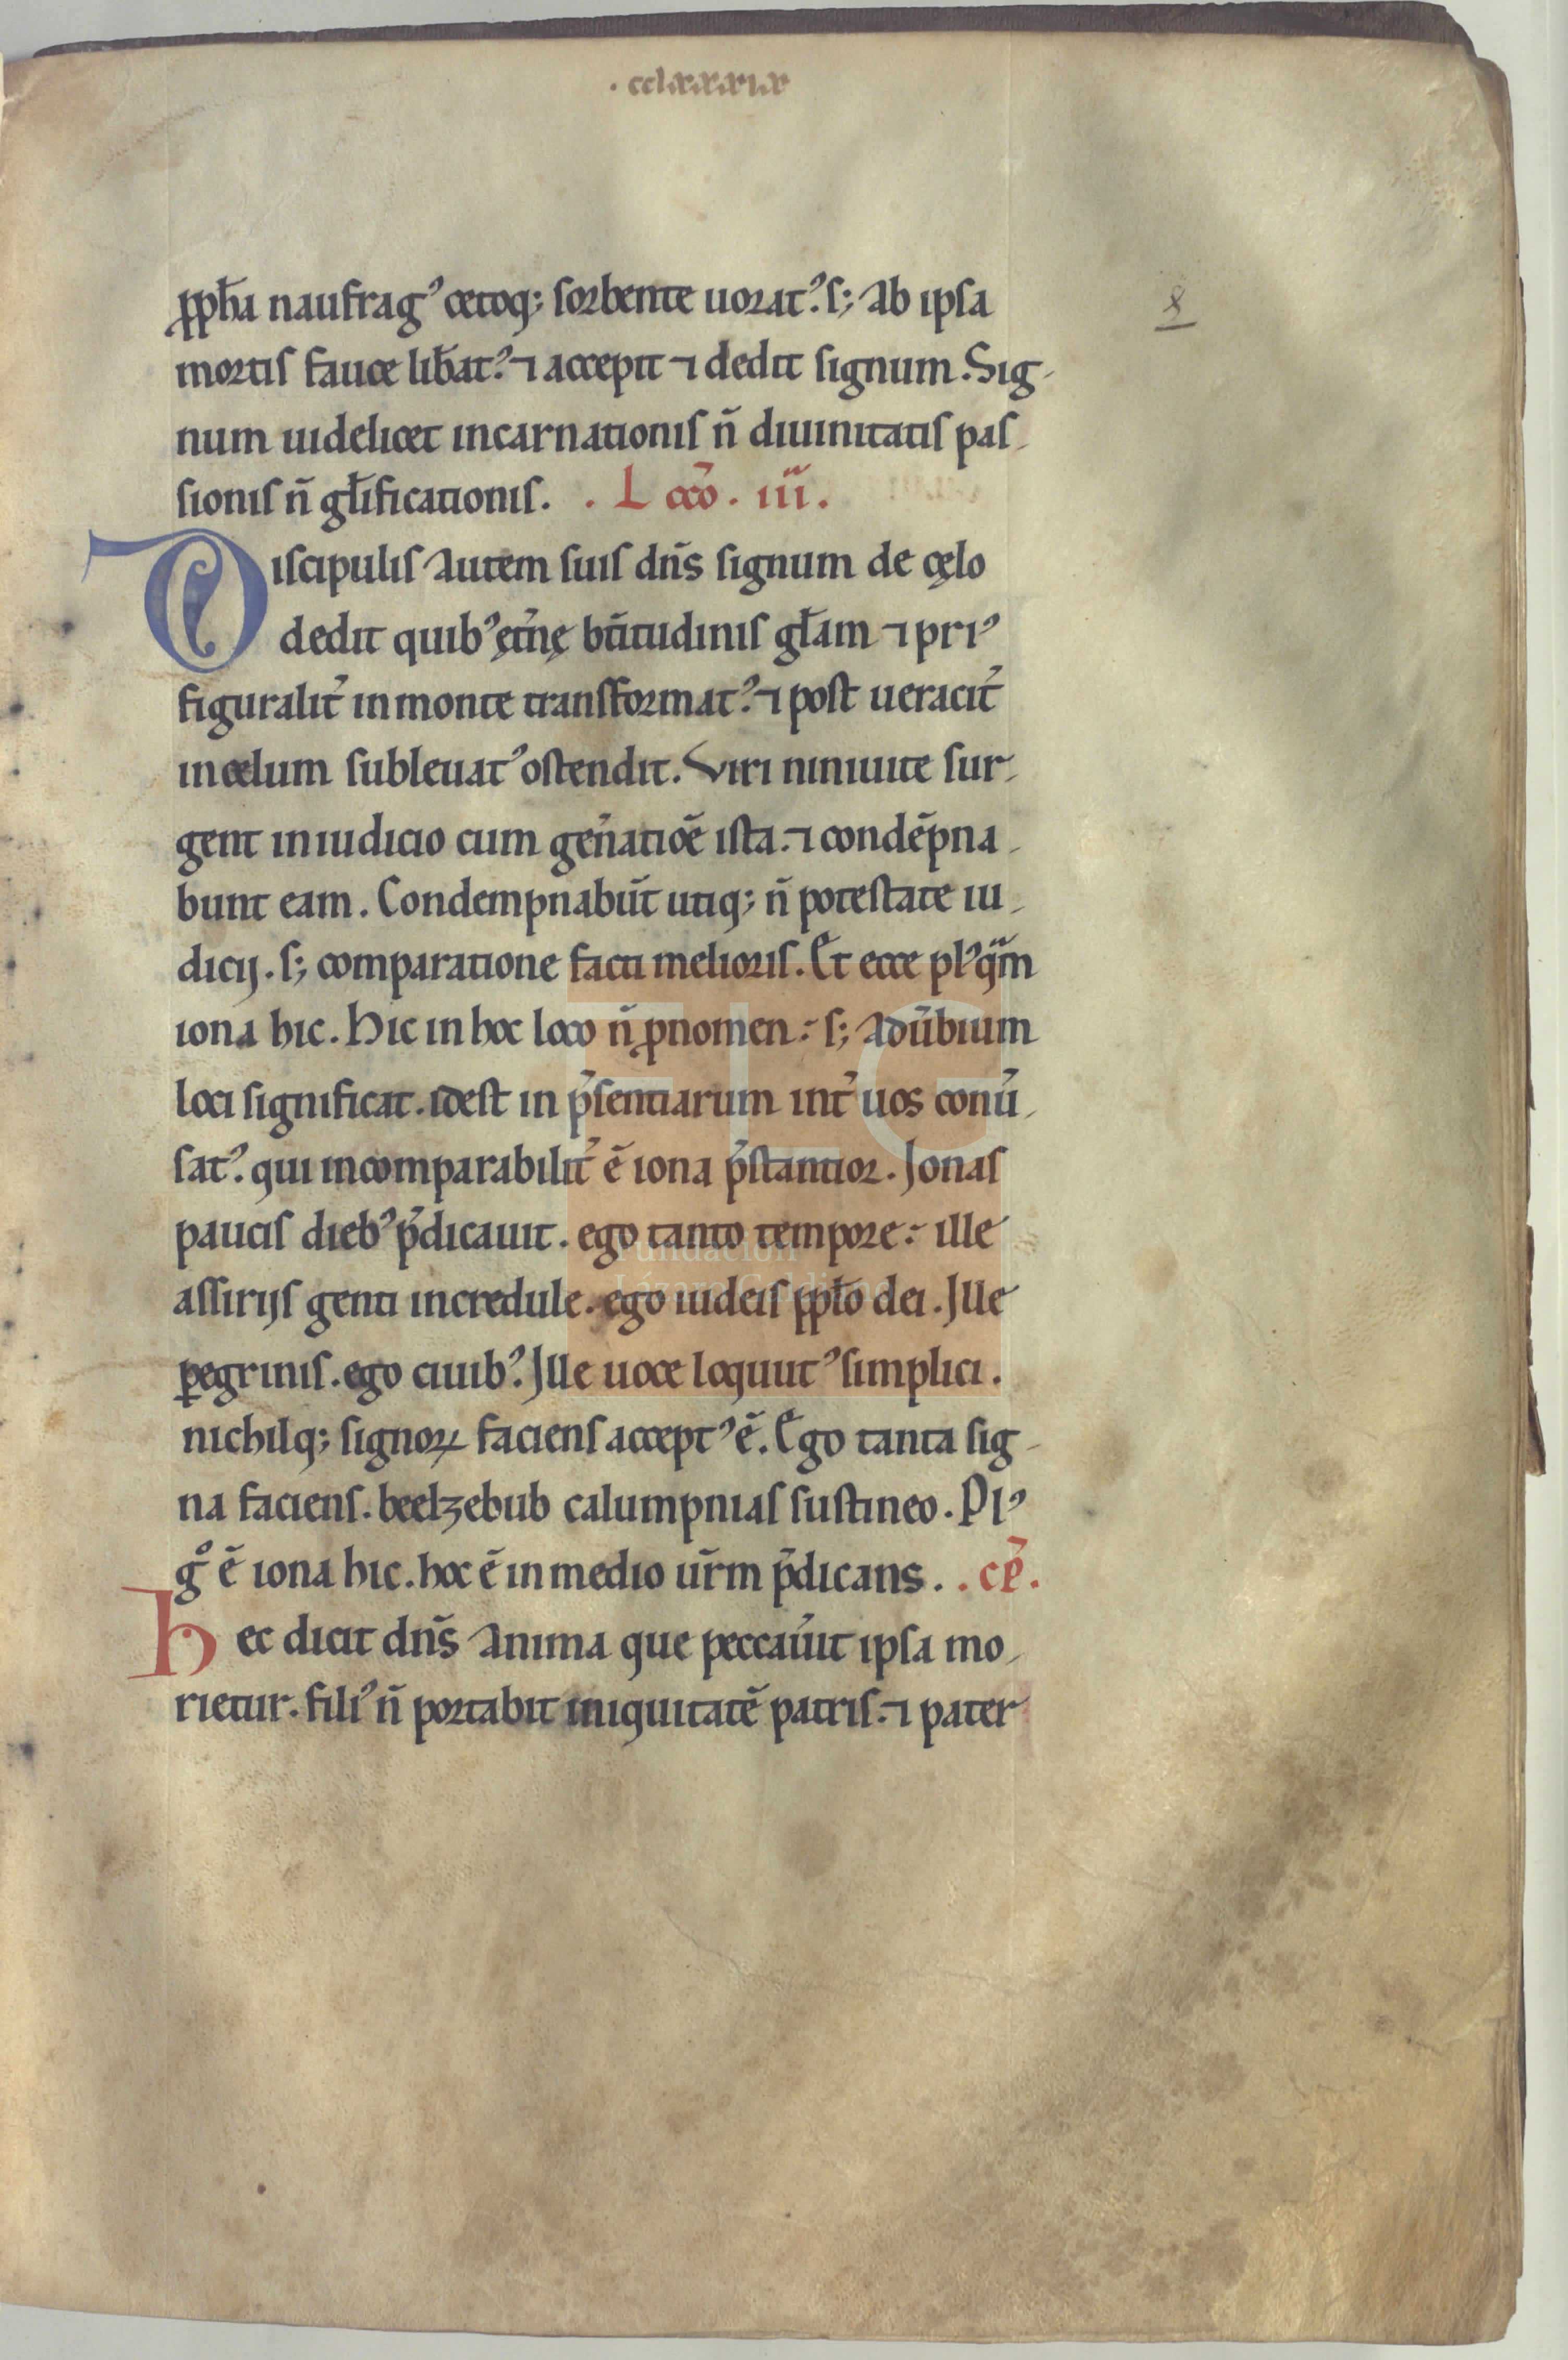 . cclxxxxix
8
ꝓph̄a naufragꝰ cetoq; sorbente uoratꝰ. s; Ab ipsa
mortis fauce lib̄atꝰ. ⁊ accepit ⁊ dedit signum. Sig-
num uidelicet incarnationis n̄ diuinitatis pas-
sionis n̄ gl̄ificationis. . Lcc̄o. iii.
Discipulis Autem suis dn̄s signum de cęlo
dedit quibꝰ ęt̄nę bt̄itudinis gl̄am ⁊ priꝰ
figuralit̄ in monte transformatꝰ. ⁊ post ueracit̄
in celum subleuatꝰ ostendit. Viri niniuite sur-
gent in iudicio cum gen̄atiōe ista. ⁊ condēpna-
bunt eam. Condempnabūt utiq; n̄ potestate iu-
dicij. s; comparatione facti melioris. Et ecce plꝰ qͣ̄m
iona hic. Hic in hoc loco n̄ ꝓnomen. s; Adūbium
loci significat. idest in p̄sentiarum int̄ uos conū-
satꝰ. qui incomparabilit̄ ē iona p̄stantior. Jonas
paucis diebꝰ p̄dicauit. ego tanto tempore. ille
assirijs genti incredule. ego iudeis ꝓpl̄o dei. Jlle
ꝑegrinis. ego ciuibꝰ. Jlle uoce loquutꝰ simplici.
nichilq; signoꝝ faciens acceptꝰ ē. Ego tanta sig-
na faciens. beelzebub calumpnias sustineo. Plꝰ
gͦ ē iona hic. hoc ē in medio ur̄m p̄dicans. . cp̄.
Hec dicit dn̄s Anima que peccau̅it ipsa mo-
rietur. filiꝰ n̄ portabit iniquitatē patris. ⁊ pater
FLG
Fundación
Lázaro Galdiano